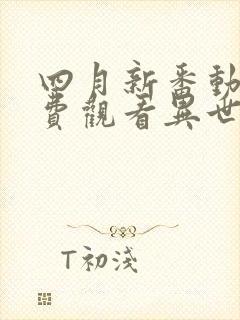 四月新番動
費觀看異世
T初淺